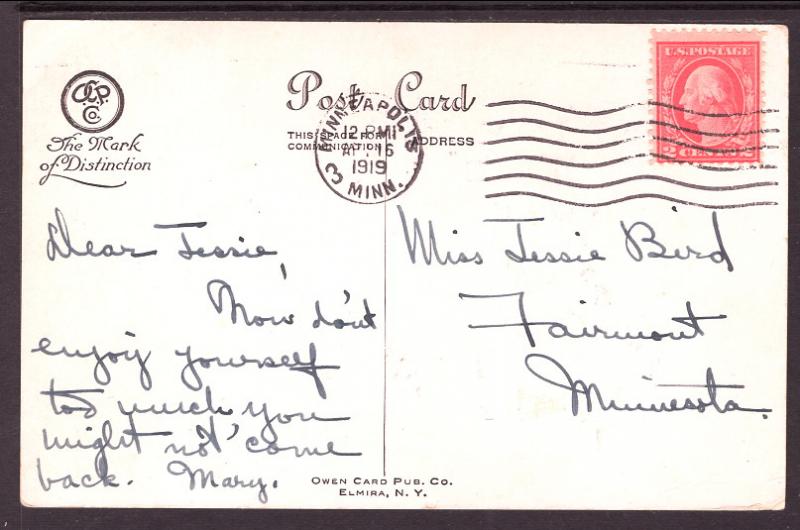 OCP.
Co.
The Mark
of Distinction
Post Card
THIS SPACE FOR
COMMUNICATION
ADDRESS
MINNEAPOLIS
12 PM
AP 16
1919
MINN.
3
U.S. POSTAGE
2 CENTS 2
Dear Jessie,
Now don't
enjoy yourself
too much you
might not come
back. Mary.
Miss Jessie Bird
Fairmont
Minnesota.
OWEN CARD PUB. CO.
ELMIRA, N. Y.